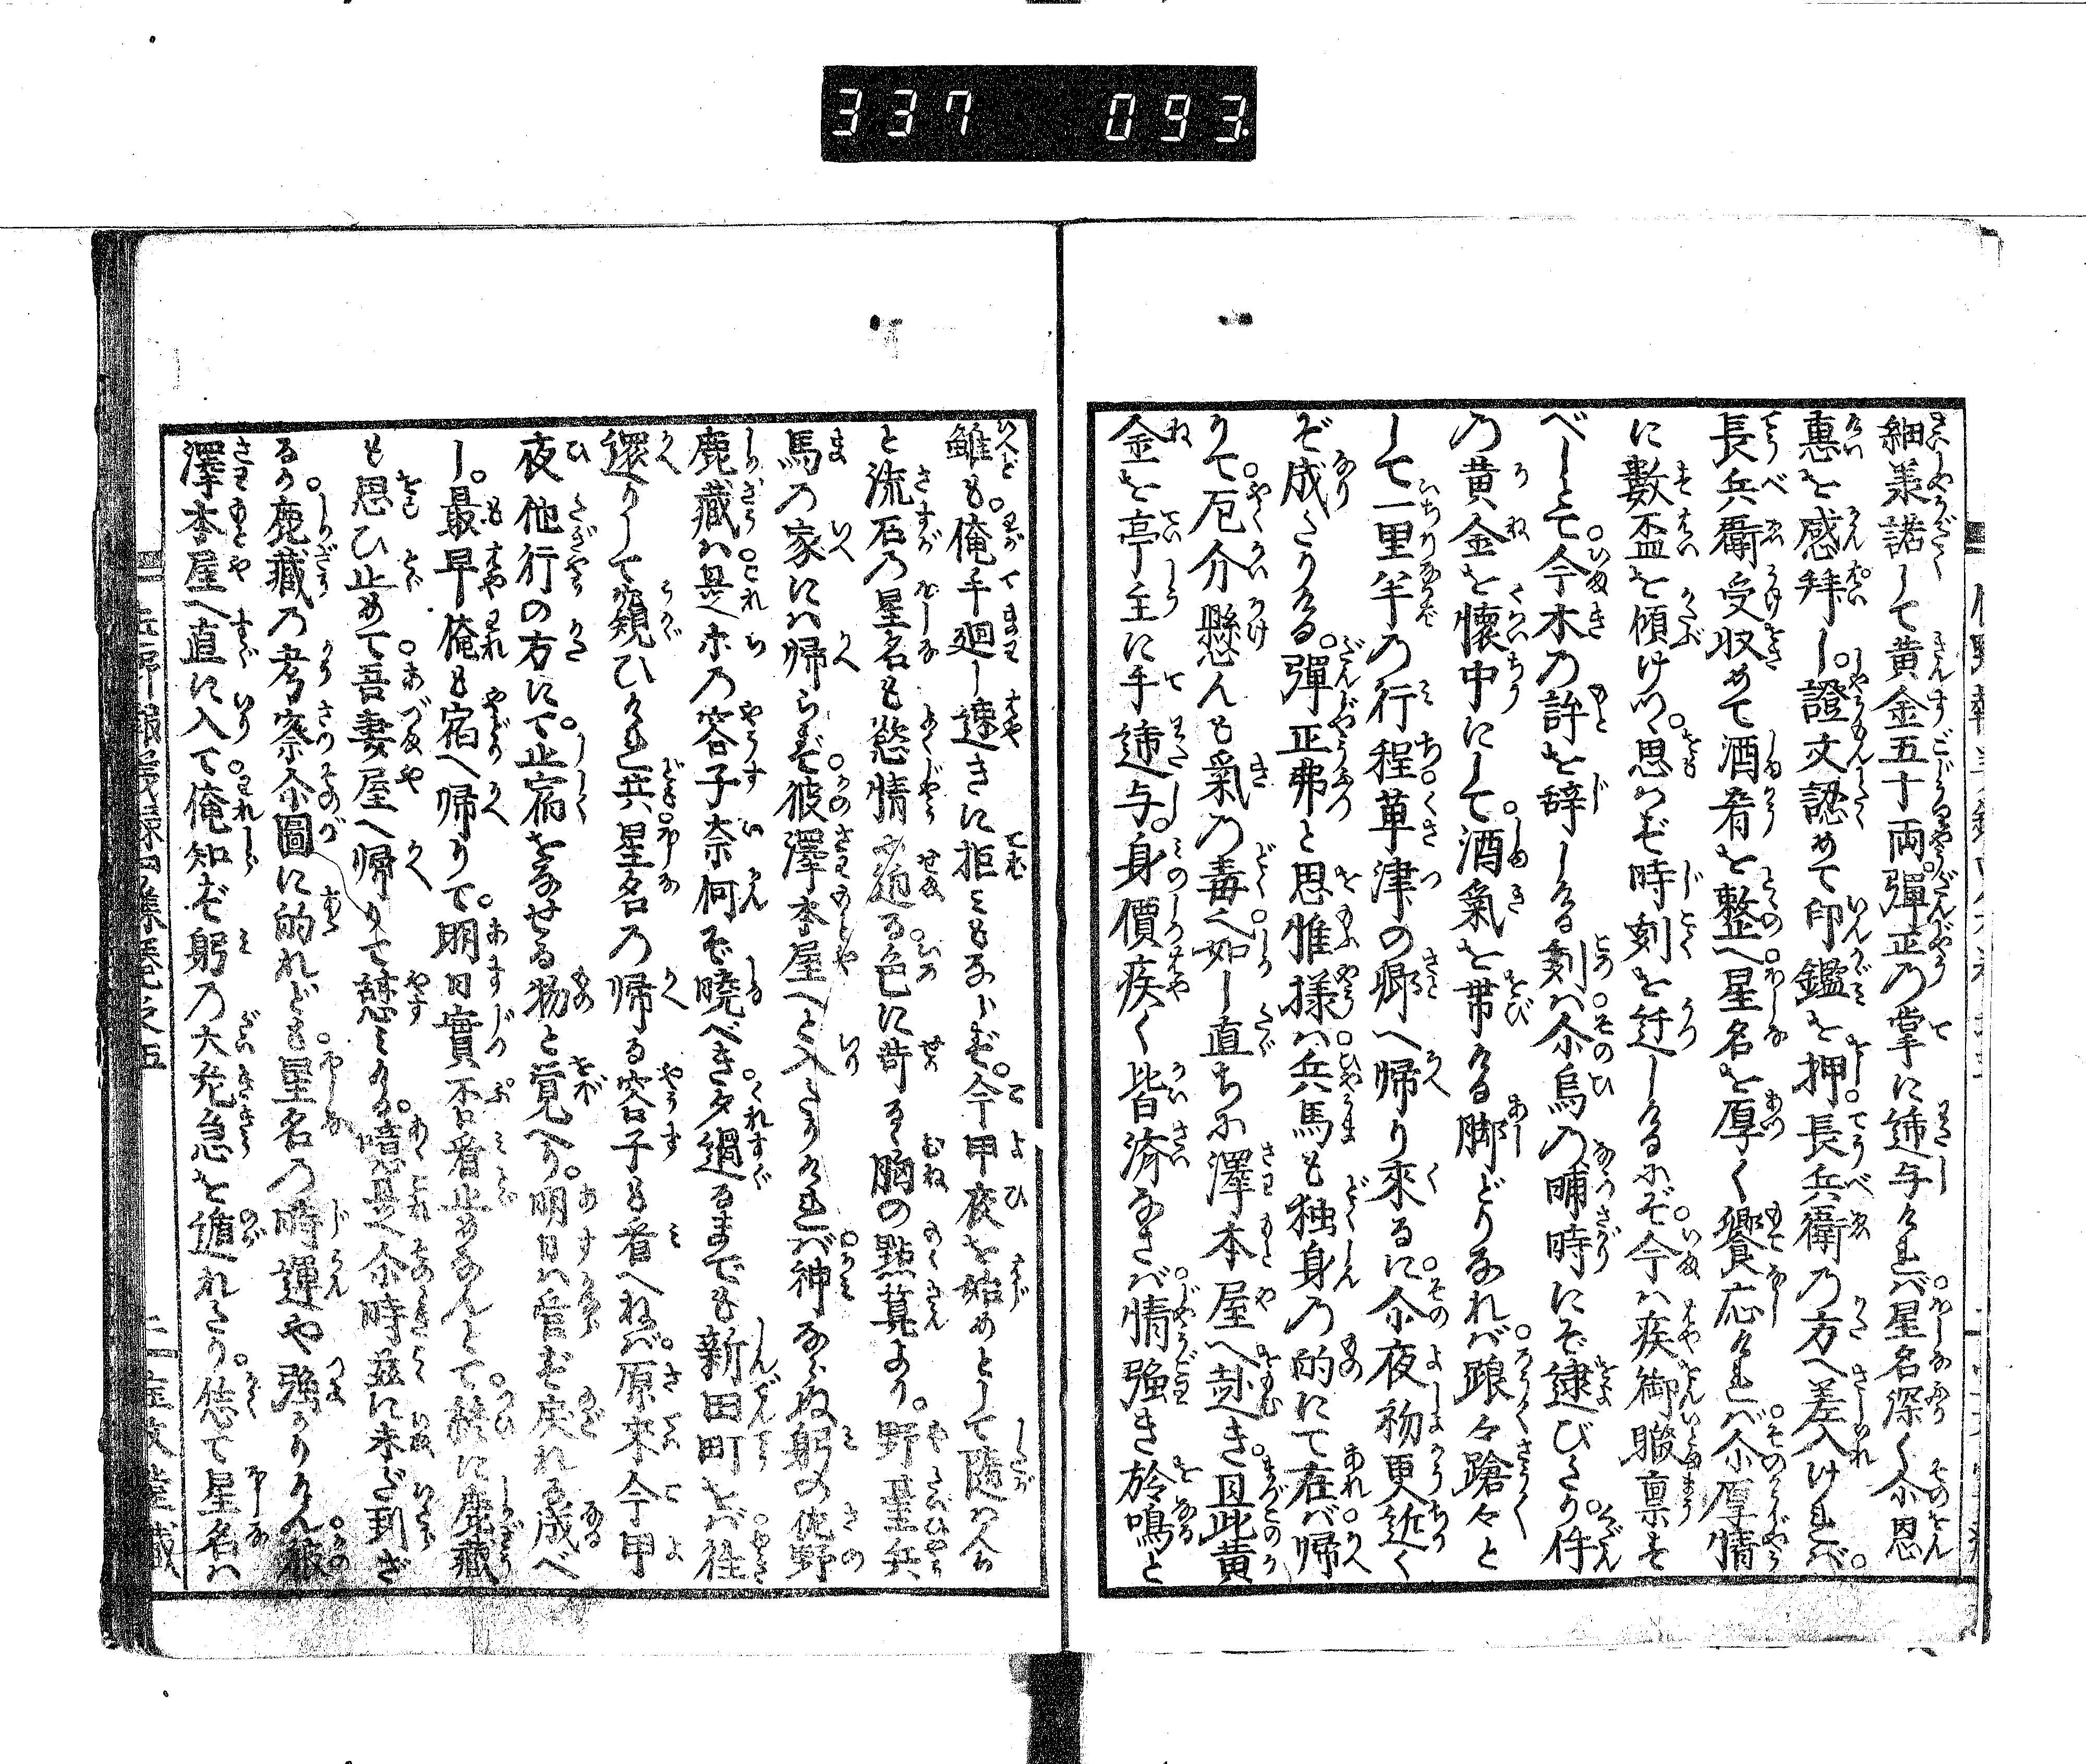 337 093.
細美諾して黄金五十両彈正の掌に逓与ければ星名深く尓恩
惠を感拜し。證文認めて印鑑を押。長兵衛の方へ差入ければ。
長兵衛受収めて酒肴を整へ星名を厚く饗応ければ尓厚情
に數盃を傾けつゝ思はず時刻を迂しけるにぞ今は疾御暇禀す
べしとて今木の許を辞しける刻は尓烏の晡時にぞ逮びたり件
の黄金を懐中にして酒氣を帯ける脚どりなれば踉々蹌々と
して一里半の行程草津の郷へ帰り來るに尓夜初更近く
ぞ成たりける。彈正弗と思惟様は兵馬も独身の的にて在ば帰
りて厄介懸んも氣の毒之如し直ちに澤本屋へ赴き且此黄
金を亭主に手逓与。身價疾く皆済なさば情強き於鳴と
雖も。俺手廻し速きに拒みもならず。今甲夜を始めとして随はん
と流石の星名も慾情に迫る色に奇るゝ胸の點算より。野里兵
馬の家には帰らずで彼澤本屋へと入たりければ神ならぬ躬の佐野
鹿藏は是ホの容子奈何で曉べき夕過るまでも新田町をば徃
還りして窺ひけれど共星名の帰る容子も看へねば原来今甲
夜他行の方にて止宿をなせる物と覚へり。明日は皆ず戻れる成べ
し。最早俺も宿へ帰りて。明日實否看止めなんとて終に鹿藏
も思ひ止めて吾妻屋へ帰りて憩みける。噫是尓時茲に未だ到ざ
るか鹿藏の考察尓圖に的れども星名の時運や強かりけん彼
澤本屋へ直に入て俺知ず躬の大危急を遁れたり。偖て星名は